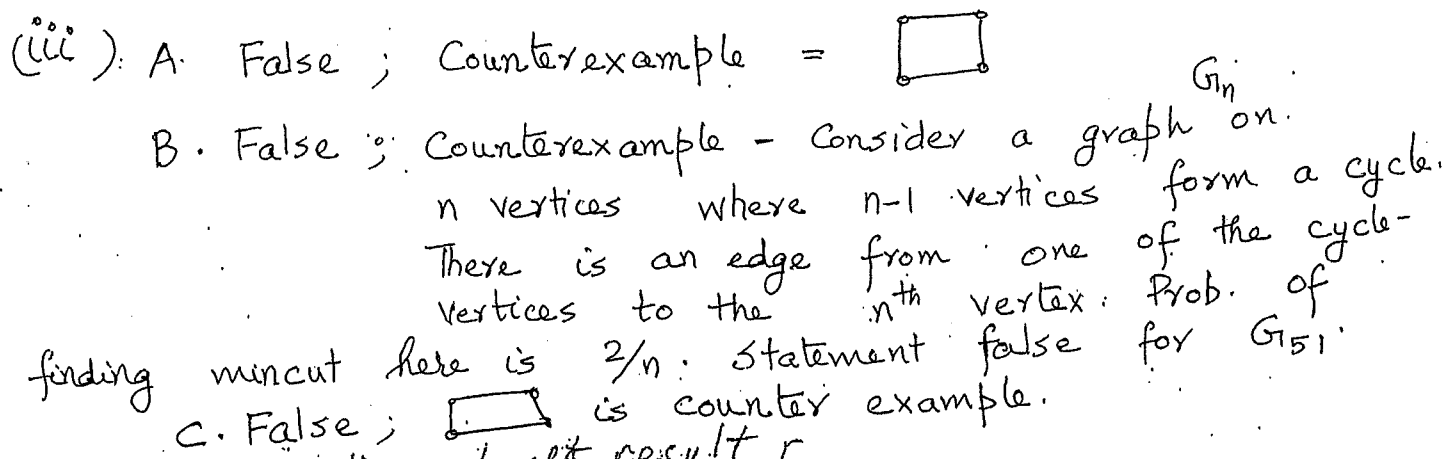 (iii). A. False ; Counterexample =
B. False ; Counterexample - Consider a graph Gn on
n vertices where n-1 vertices form a cycle.
There is an edge from one of the cycle-
vertices to the nth vertex. Prob. of
finding mincut here is 2/n. Statement false for G51.
C. False ; is counter example.
result